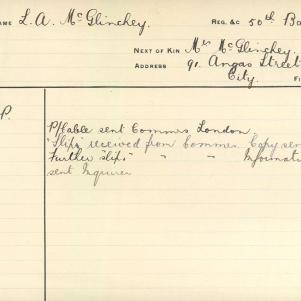 NAME L. A. McGlinchey. REG. &c 50th Ba
NEXT OF KIN Mrs McGlinchey.
ADDRESS 91. Angas Street
City. F
P.
P/Cable sent Commrs London
"Slip" received from Commrs. Copy sen
Further "slip" " " Informati
sent Inquirer